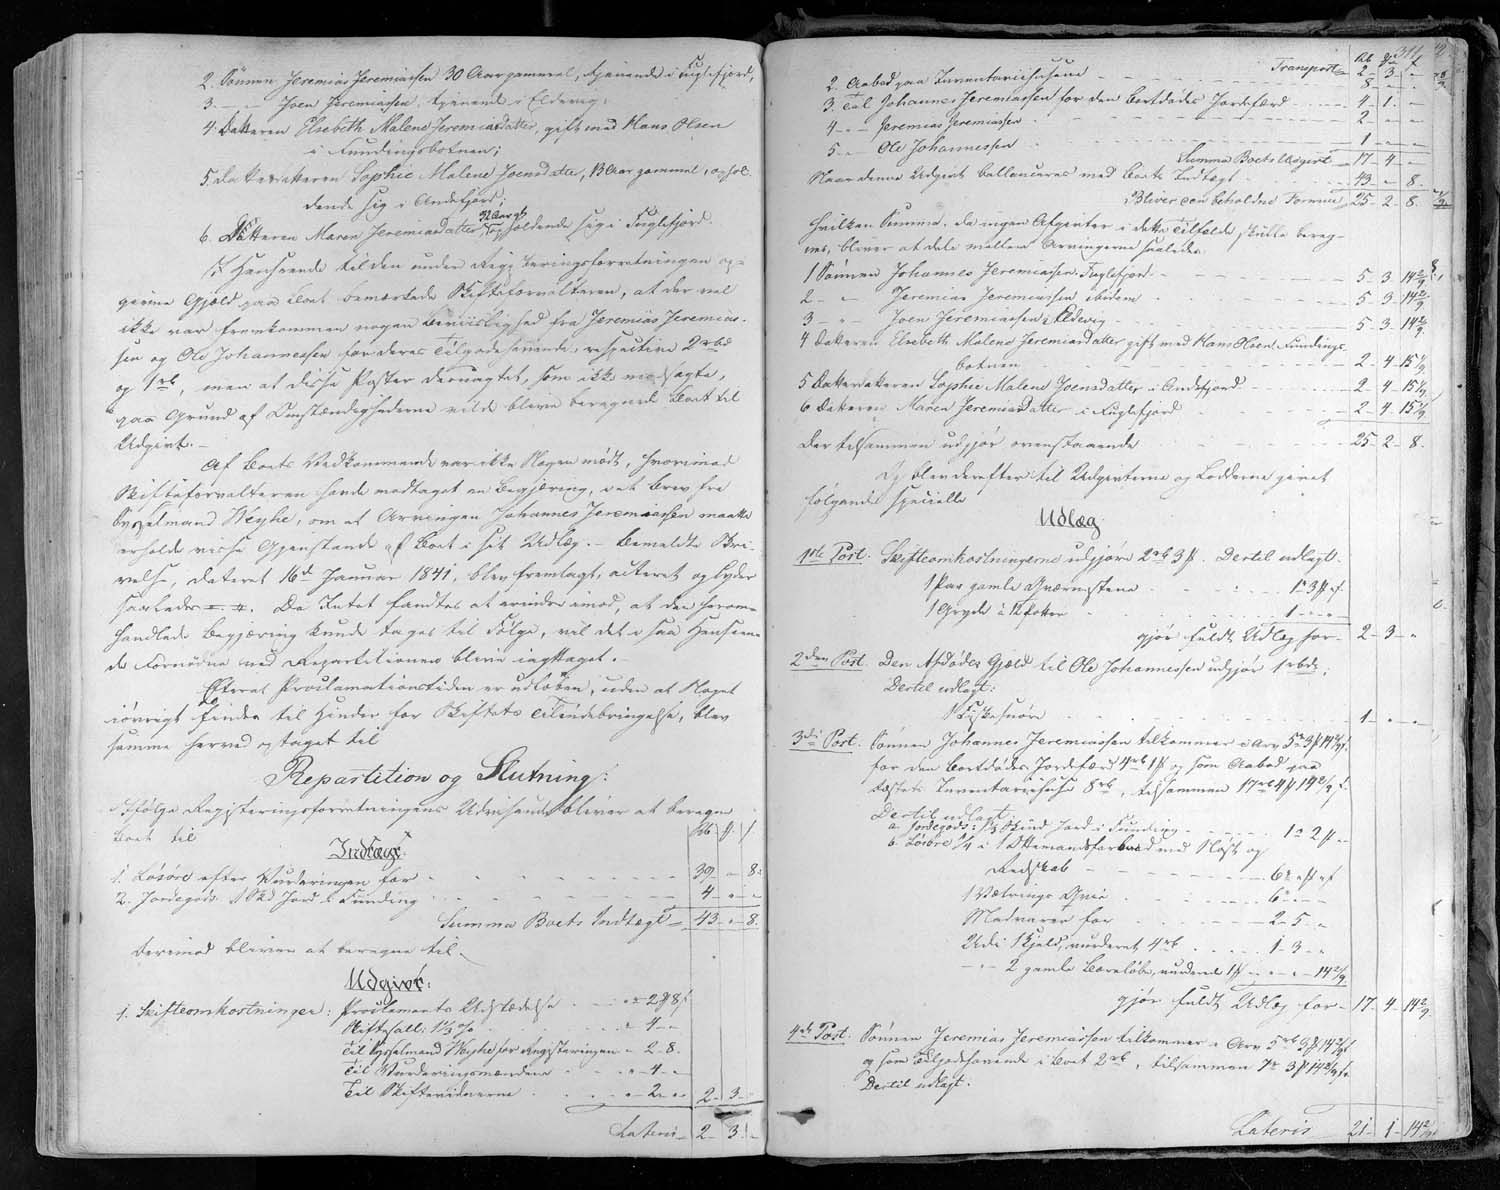 2. Sønnen Jeremias Jeremiassen 30 Aar gammel, tjenende i Fuglefjord,
3. — — Joen Jeremiassen, tjenende i Eldevig,
4. Datteren Elsebeth Malene Jeremiasdatter, gift med Hans Olsen
i Fundingsbotnen;
5. Datterdatteren Sophie Malene Joensdatter, 13 Aar gammel, ophol-
dende sig i Andefjord;
6. Datteren Maren Jeremiasdatter, opholdende sig i Fuglefjord.
I Henseende til den under Registeringsforretningen op-
givne Gjæld paa Boet bemærkede Skifteforvalteren, at der vel
ikke var fremkommen nogen Beviislighed fra Jeremias Jeremias-
sen og Ole Johannessen for deres Tilgodehavende, respective 2 rbd
og 1 rb, men at disse Poster desuagtet, som ikke modsagte,
paa Grund af Omstændighederne vilde blive beregnede Boet til
Udgivt. —
Af Boets Vedkommende var ikke Nogen mødt, hvorimod
Skifteforvalteren havde modtaget en Begjæring, ved Brev fra
Sysselmand Weyhe, om at Arvingen Johannes Jeremiassen maatte
erholde visse Gjenstande af Boet i sit Udlæg. — Bemeldte Skri-
velse, dateret 16d Januar 1841, blev fremlagt, acteret og lyder
saaledes Da Intet fandtes at erindre imod, at den herom-
handlede Begjæring kunde tages til Følge, vil det i saa Henseen-
de Fornødne ved Repartitionen blive iagttaget. —
Efterat Proclamationstiden er udløben, uden at Noget
iøvrigt findes til Hinder for Skiftets Tilendebringelse, blev
samme herved optaget til
Repartition og Slutning:
Ifølge Registeringsforretningens Udvisende bliver at beregne
Boet til
Rb ß.
Indtægt.
1. Løsøre efter Vurderingen for 39 - „ - 8
2. Jordegods 1 Skd Jord i Funding 4 - „ - „
Summa Boets Indtægt 43 - „ - 8.
Derimod bliver at beregne til
Udgivt:
1. Skifteomkostninger: Proclamets Udstædelse „ - 2 ß 8
Skiftesall: 1⅓ % „ - 4 - „
Til Sysselmand Weyhe for Registeringen „ - 2 - 8.
Til Vurderingsmændene „ - 4 - „
Til Skiftevidnerne „ - 2 - „ 2 - 3 - „
Lateris 2 - 3 - „
311
Transport 2 - 3 - „
2. Aabod paa Inventariehusene 8 - „ - „
3. Til Johannes Jeremiassen for den Bortdødes Jordefærd 4 - 1 - „
4 — „ — Jeremias Jeremiassen 2 - „ - „
5 — „ — Ole Johannessen 1 - „ - „
Summa Boets Udgivt 17 - 4 - „
Naar denne Udgivt ballanceres med Boets Indtægt 43 - „ - 8.
Bliver en beholden Formue 25 - 2 - 8.
hvilken Summa, da ingen Afgivter i dette Tilfælde skulle bereg-
nes, bliver at dele mellem Arvingerne saaledes:
1 Sønnen Johannes Jeremiassen, Fuglefjord 5 - 3 - 14 2/9
2 — „ Jeremias Jeremiassen ibidem 5 - 3 - 14 2/9
3 — „ Joen Jeremiassen i Eldevig 5 - 3 - 14 2/9
4 Datteren Elsebeth Malene Jeremiasdatter gift med Hans Olsen, Fundings-
botnen 2 - 4 - 15 1/9
5 Datterdatteren Sophie Malene Joensdatter i Andefjord 2 - 4 - 15 1/9
6 Datteren Maren Jeremiasdatter i Fuglefjord 2 - 4 - 15 1/9
Der tilsammen udgjør ovenstaaende 25 - 2 - 8.
Og blev derefter til Udgivterne og Lodderne givet
følgende specielle
Udlæg
1ste Post. Skifteomkostningerne udgjøre 2 rb 3 ß. Dertil udlagt:
1 Par gamle Qværnstene 1 - 3 ß
1 Gryde á 12 Potter 1 - „ - „
gjør fuldt Udlæg for 2 - 3 - „
2den Post. Den Afdødes Gjæld til Ole Johannessen udgjør 1 rbd.
Dertil udlagt:
1 Fiskesnøre 1 - „ - „
3die Post. Sønnen Johannes Jeremiassen tilkommer i Arv 5 rb 3 ß 14 2/9
for den Bortdødes Jordefærd 4 rb 1 ß og som Aabod paa
Fæstets Inventariehuse 8 rb, tilsammen 17 rb 4 ß 14 2/9
Dertil udlagt:
a. Jordegods: 1/3 Skind Jord i Funding 1 - 2 ß
b. Løsøre ¼ i 1 Ottemandsfarbaad med Nøst og
Redskab 6 - „ ß
1 Vætrings Qvie 6 - „
Madvarer for 2 - 5 - „
Udi 1 Kjeld, vurderet 4 rb 1 - 3 - „
— „ — 2 gamle Bæreløbe, vurderede 1 ß „ - „ - 14 2/9
gjør fuldt Udlæg for 17 - 4 - 14 2/9
4de Post. Sønnen Jeremias Jeremiassen tilkommer i Arv 5 rb 3 ß 14 2/9
og som Tilgodehavende i Boet 2 rb, tilsammen 7 3 ß 14 2/9
Dertil udlagt:
Lateris 21 - 1 - 14 2/9